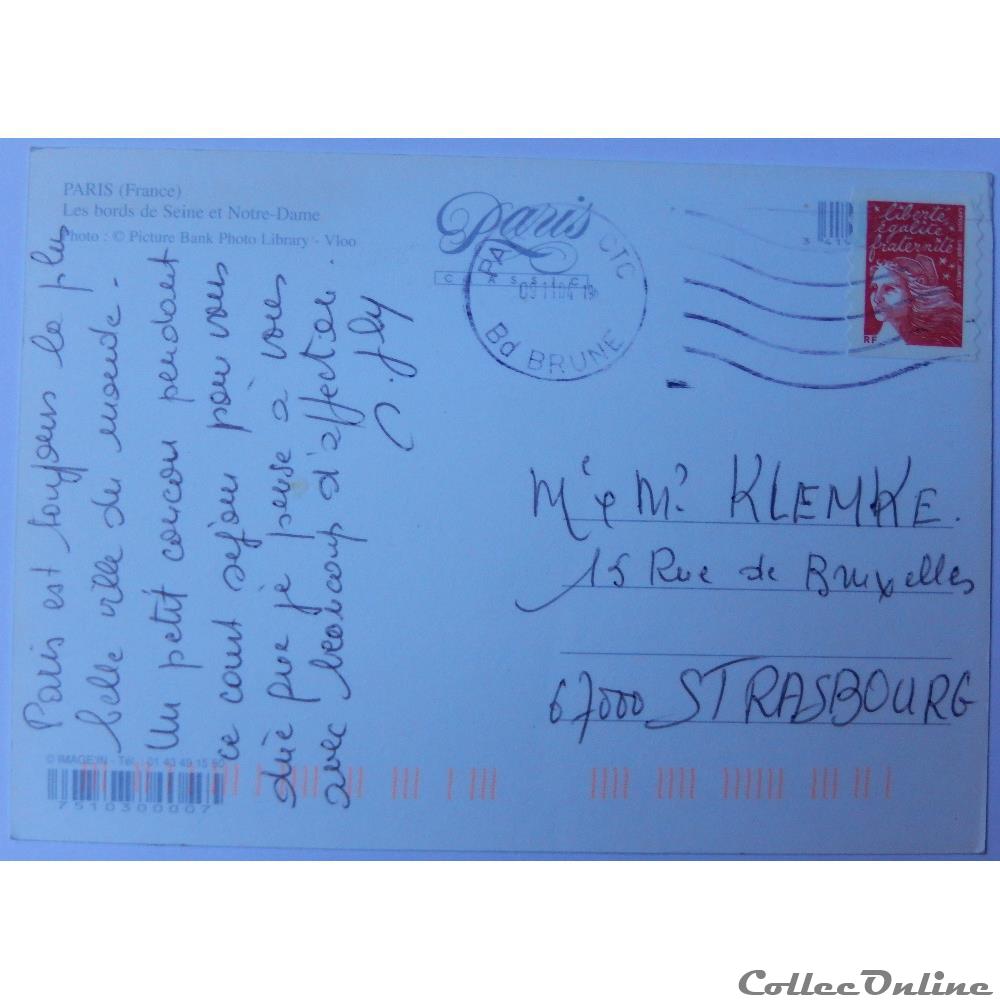 PARIS (France)
Les bords de Seine et Notre-Dame
Photo : © Picture Bank Photo Library - Vloo
Paris
CLASSIC
PA CTC
Bd BRUNE
liberté
égalité
fraternité
RF
Paris est toujours la plus
belle ville du monde.
Un petit coucou pendant
ce court séjour pour vous
dire que je pense à vous
avec beaucoup d'affection.
Mr & Me KLEMKE.
15 Rue de Bruxelles
67000 STRASBOURG
© IMAGE'IN - Tél. : 01 43 49 15 50
7510300007
CollecOnline